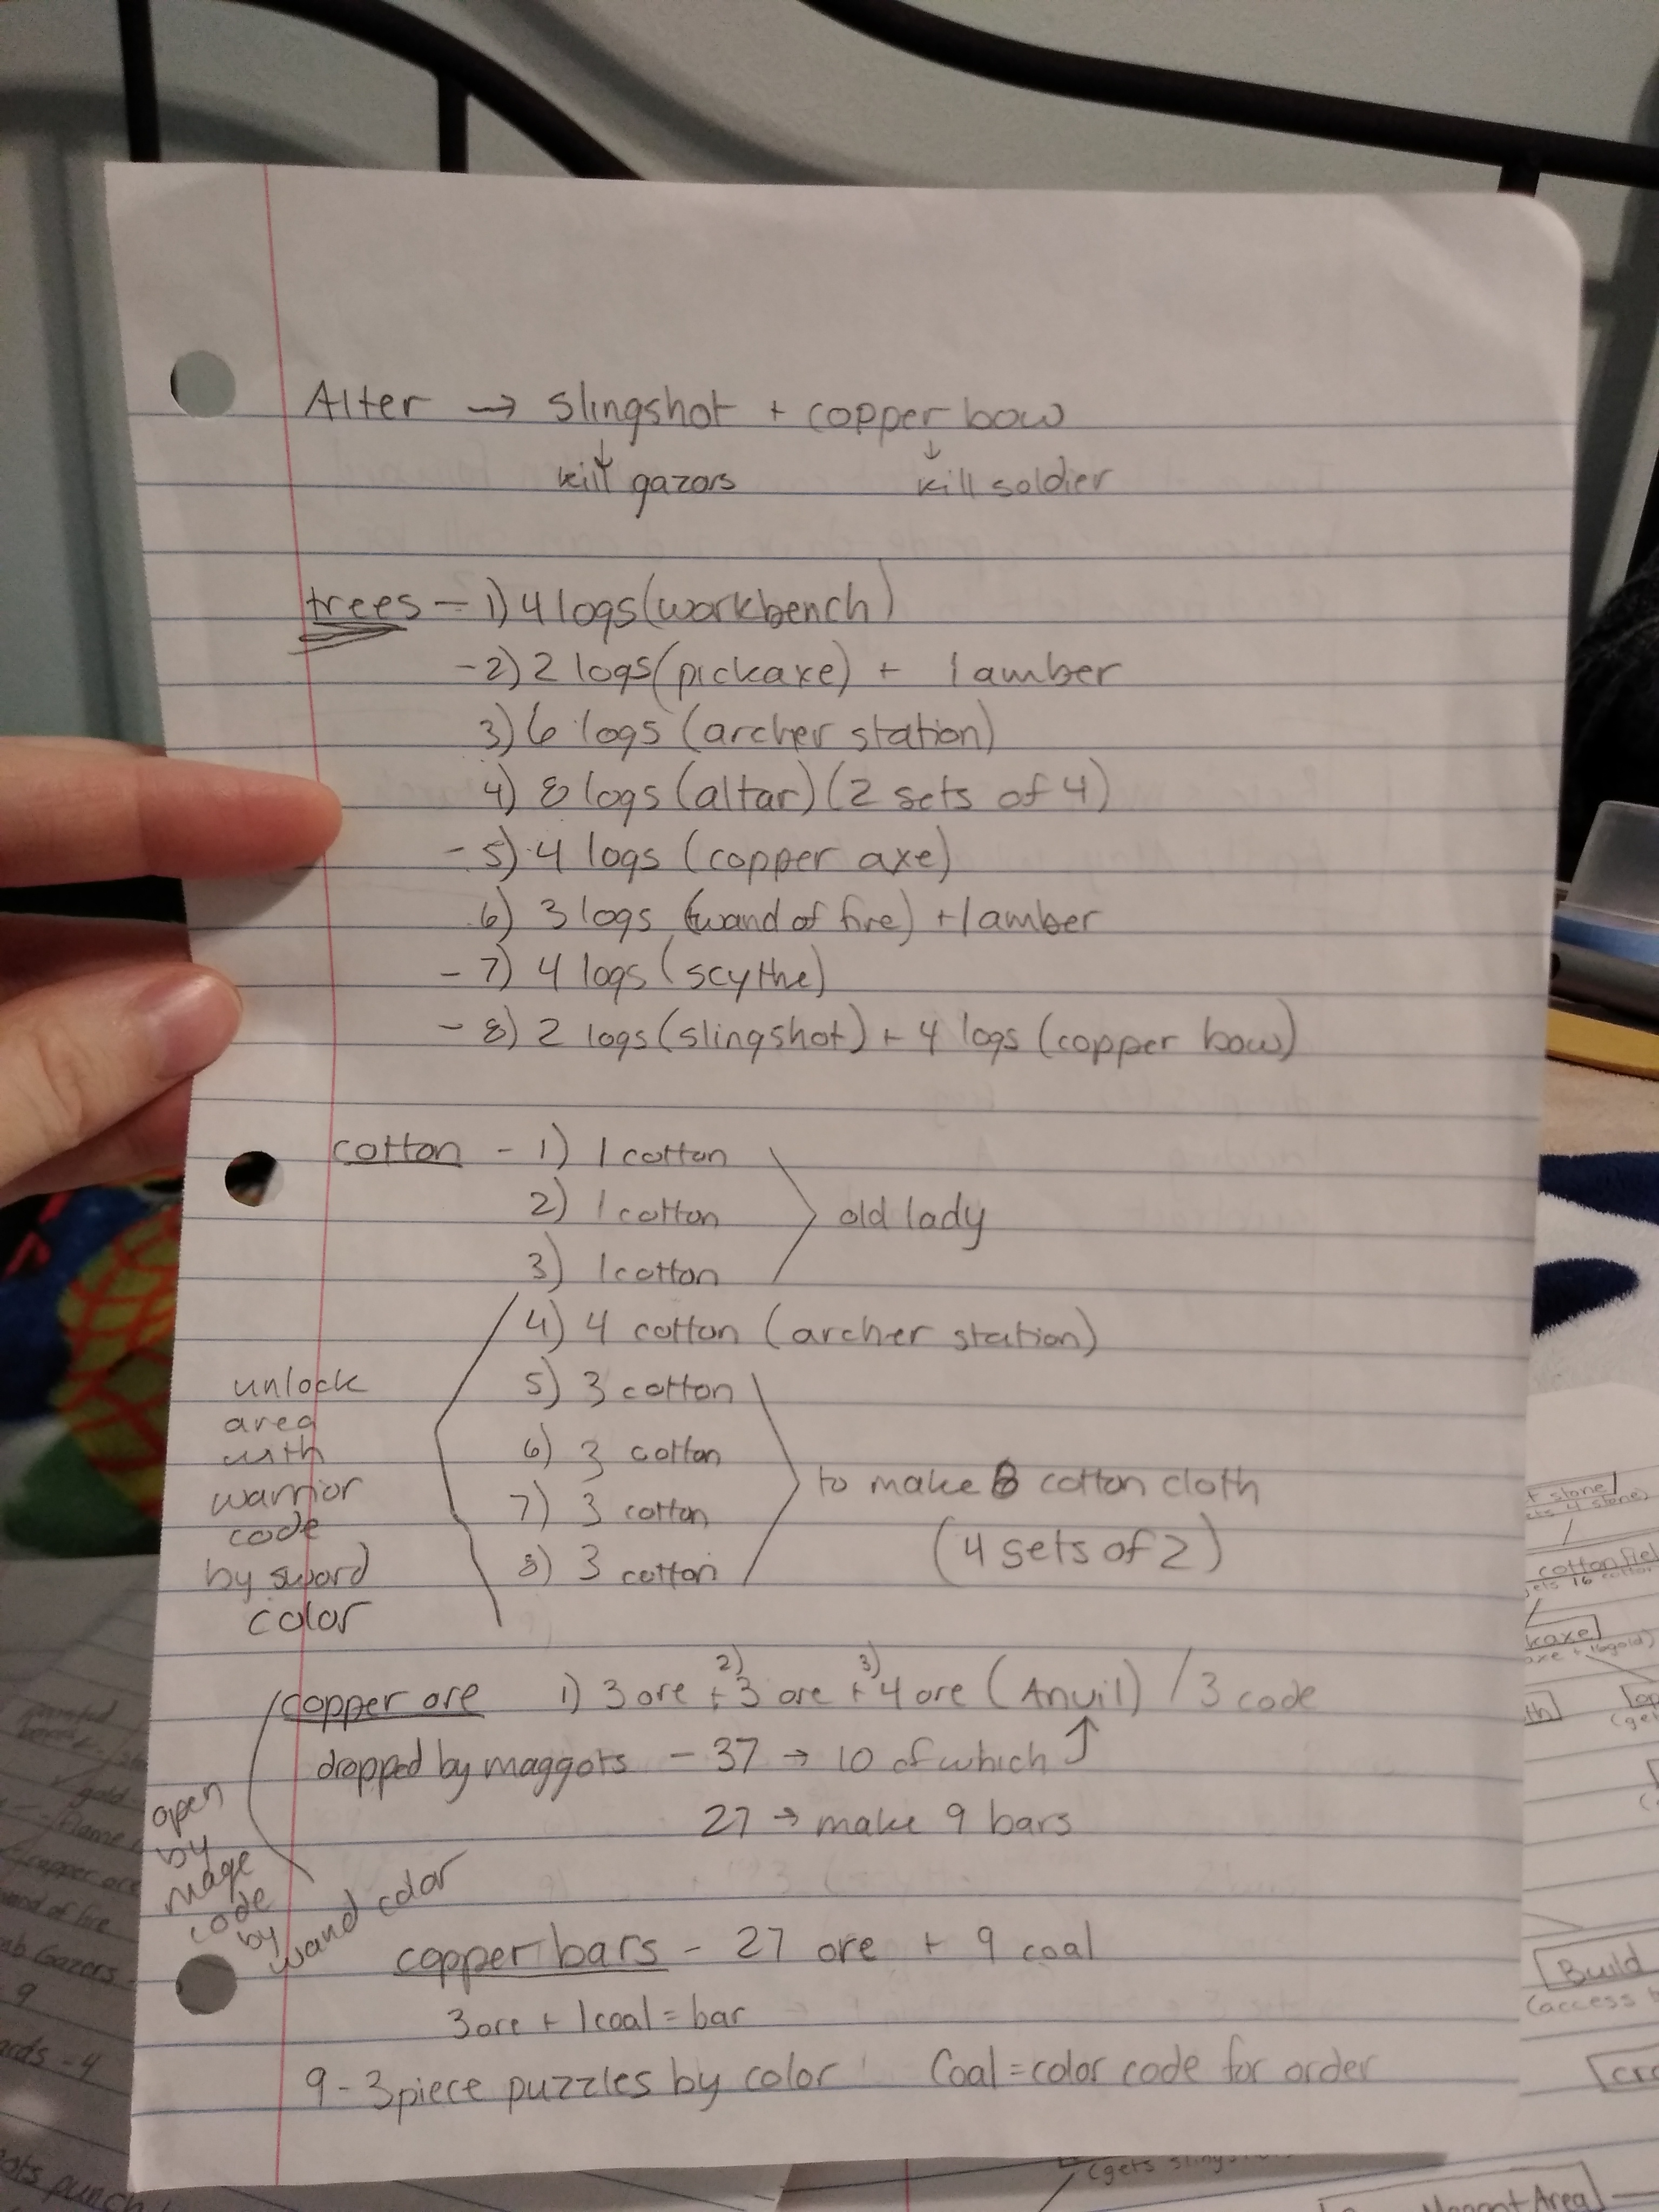 Alter → slingshot + copper bow
↓ ↓
kill gazors kill soldier
trees - 1) 4 logs (workbench)
- 2) 2 logs (pickaxe) + 1 amber
3) 6 logs (archer station)
4) 8 logs (altar) (2 sets of 4)
- 5) 4 logs (copper axe)
6) 3 logs (wand of fire) + 1 amber
- 7) 4 logs (scythe)
- 8) 2 logs (slingshot) + 4 logs (copper bow)
cotton - 1) 1 cotton
2) 1 cotton
3) 1 cotton
old lady
4) 4 cotton (archer station)
5) 3 cotton
6) 3 cotton
7) 3 cotton
8) 3 cotton
to make 8 cotton cloth
(4 sets of 2)
unlock
area
with
warrior
code
by sword
color
copper ore 1) 3 ore + 2) 3 ore + 3) 4 ore (Anvil) / 3 code
dropped by maggots - 37 → 10 of which ↑
27 → make 9 bars
open
by
mage
code
by
wand color
copper bars - 27 ore + 9 coal
3 ore + 1 coal = bar
9 - 3 piece puzzles by color Coal = color code for order
4 stone)
cotton fiel
16 cotton
Build
(access
gold
flame
copper ore
wand of fire
Gazers -
9
- 4
punch
(gets slings
Maggot Area